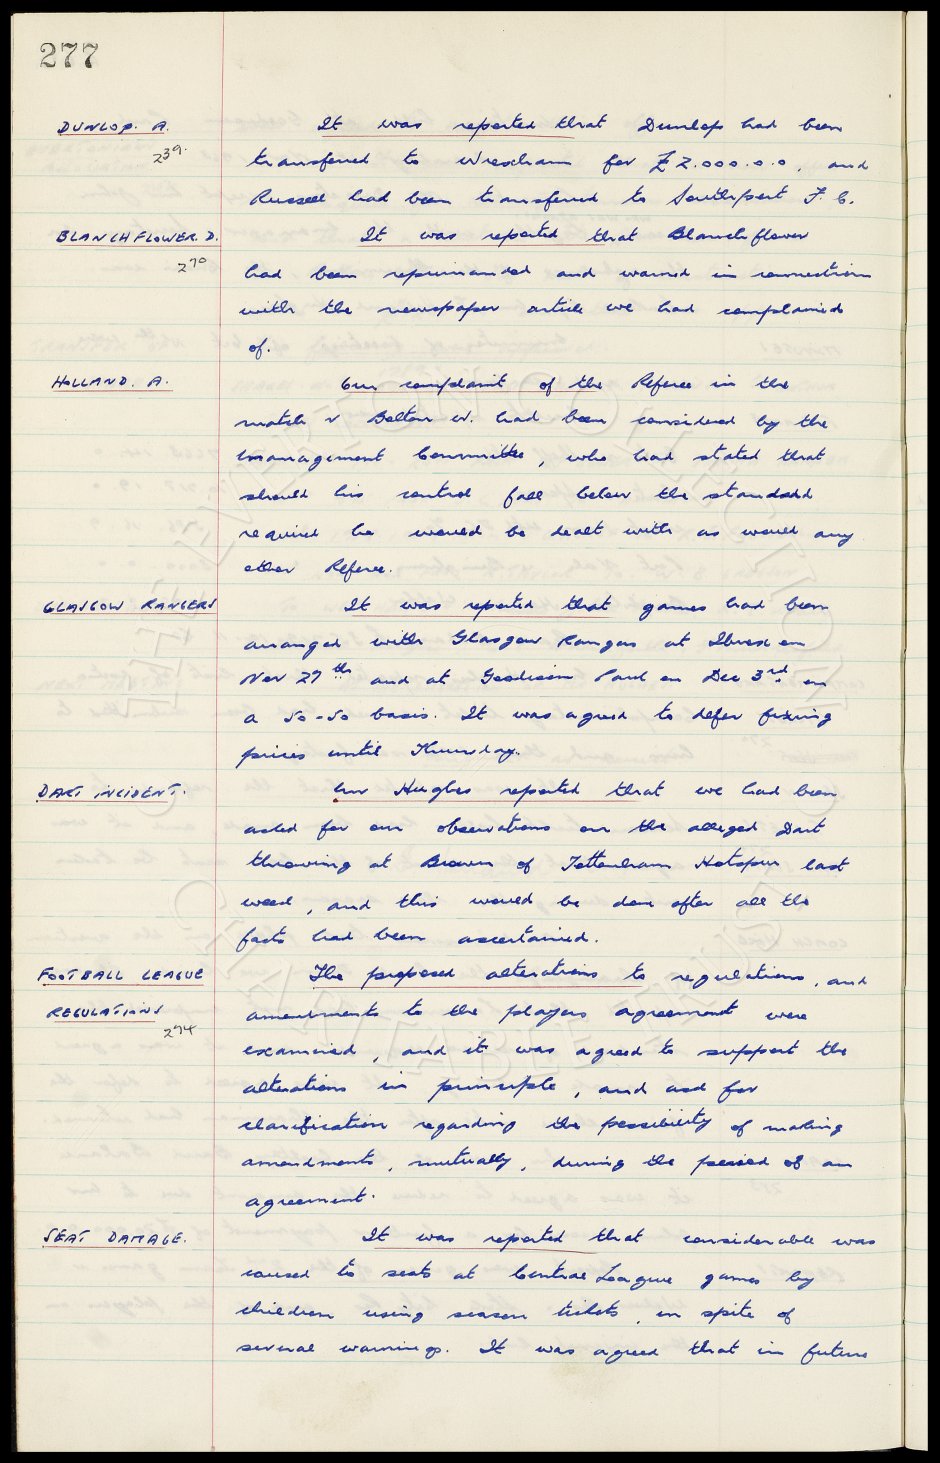 277
DUNLOP. A. It was reported that Dunlop had been
239. transferred to Wrexham for £2.000.0.0, and
Russell had been transferred to Southport F.C.
BLANCHFLOWER. D. It was reported that Blanchflower
270 had been reprimanded and warned in connection
with the newspaper article we had complained
of.
HOLLAND. A. Our complaint of the Referee in the
match v Bolton W. had been considered by the
Management Committee, who had stated that
should his control fall below the standard
required he would be dealt with as would any
other Referee.
GLASGOW RANGERS It was reported that games had been
arranged with Glasgow Rangers at Ibrox on
Nov 27th and at Goodison Park on Dec 3rd on
a 50-50 basis. It was agreed to defer fixing
prices until Thursday.
DART INCIDENT. Mr Hughes reported that we had been
asked for our observations on the alleged Dart
throwing at Brown of Tottenham Hotspur last
week, and this would be done after all the
facts had been ascertained.
FOOTBALL LEAGUE The proposed alterations to regulations, and
REGULATIONS amendments to the players agreement were
274 examined, and it was agreed to support the
alterations in principle, and ask for
clarification regarding the possibility of making
amendments, mutually, during the period of an
agreement.
SEAT DAMAGE. It was reported that considerable was
caused to seats at Central League games by
children using season tickets, in spite of
several warnings. It was agreed that in future